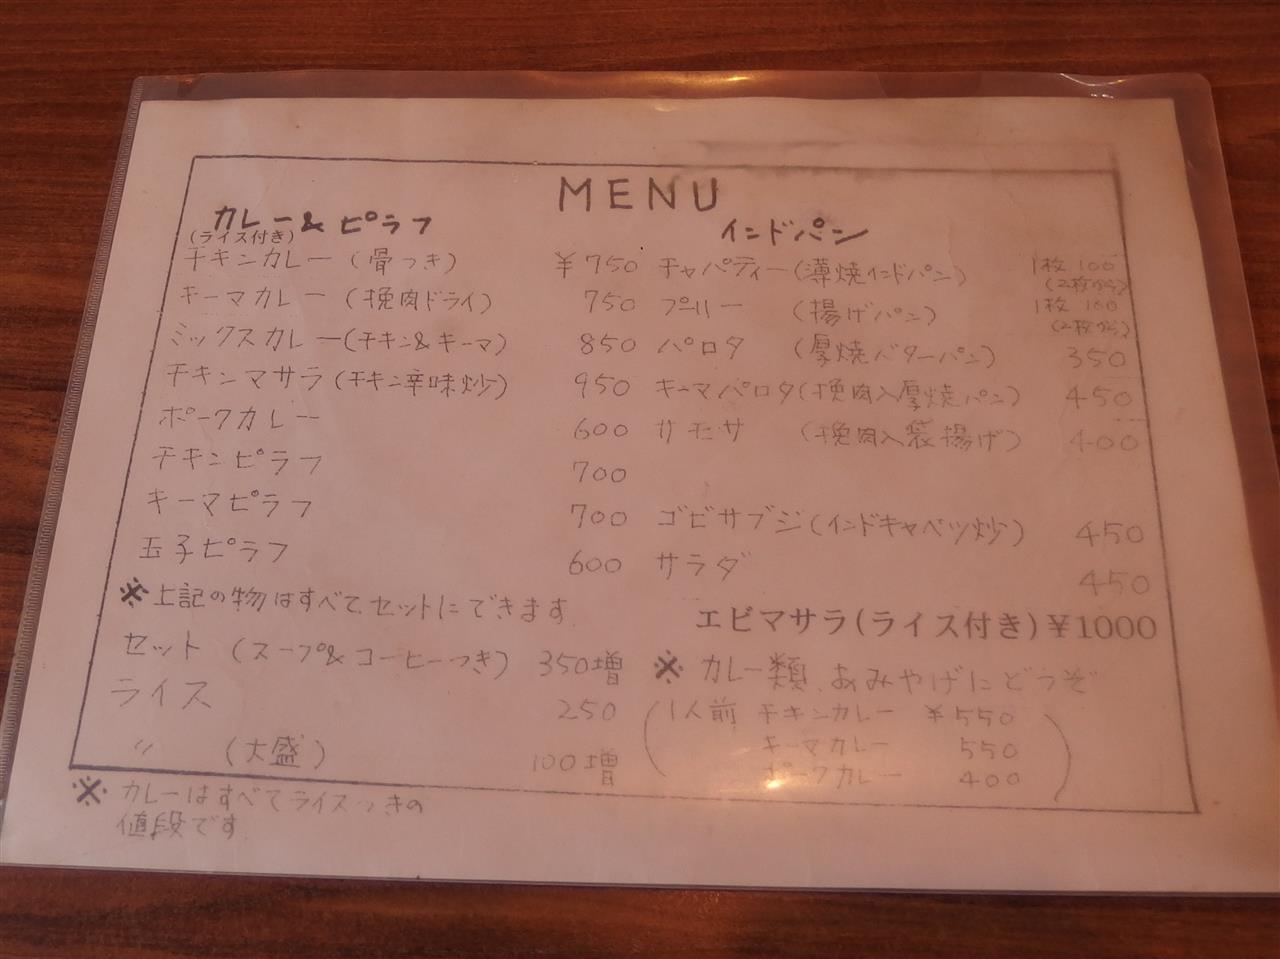 MENU
カレー & ピラフ
(ライス付き)
チキンカレー (骨つき) ¥750
キーマカレー (挽肉ドライ) 750
ミックスカレー(チキン&キーマ) 850
チキンマサラ(チキン辛味炒) 950
ポークカレー 600
チキンピラフ 700
キーマピラフ 700
玉子ピラフ 600
※上記の物はすべてセットにできます
セット (スープ&コーヒーつき) 350増
ライス 250
〃 (大盛) 100増
※ カレーはすべてライスつきの
値段です
インドパン
チャパティー(薄焼インドパン) 1枚 100
(2枚から)
プーリー (揚げパン) 1枚 100
(2枚から)
パロタ (厚焼バターパン) 350
キーマパロタ(挽肉入厚焼パン) 450
サモサ (挽肉入袋揚げ) 400
ゴビサブジ(インドキャベツ炒) 450
サラダ 450
エビマサラ(ライス付き)¥1000
※ カレー類、おみやげにどうぞ
(1人前 チキンカレー ¥550
キーマカレー 550
ポークカレー 400)